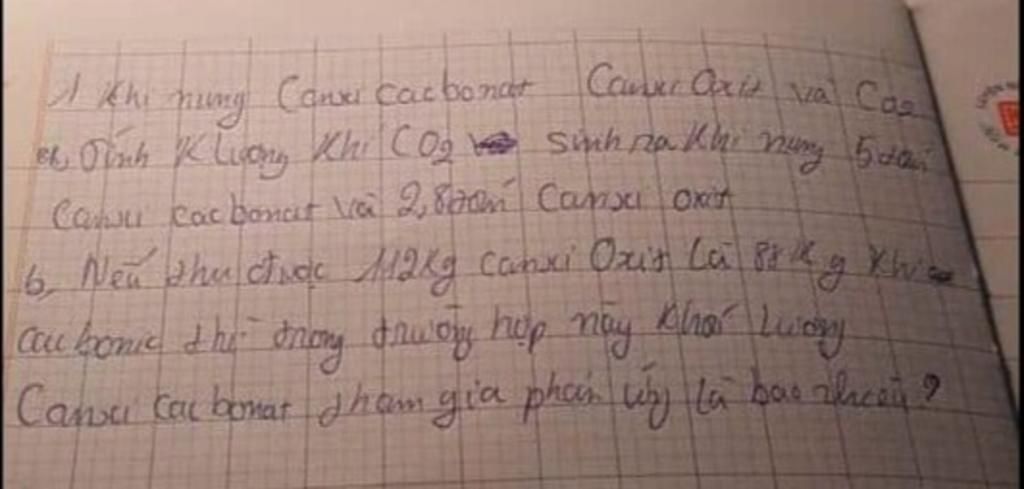 1 Khi nung Canxi cacbonat Canxi Oxit và CO2
a, Tính K Lượng Khí CO2 sinh ra khi nung 5 tấn
Canxi cacbonat và 2,8 tấn Canxi oxit
b, Nếu thu được 112Kg Canxi Oxit là 88Kg Khí
cacbonic thì trong trường hợp này Khối Lượng
Canxi cacbonat tham gia phản ứng là bao nhiêu?